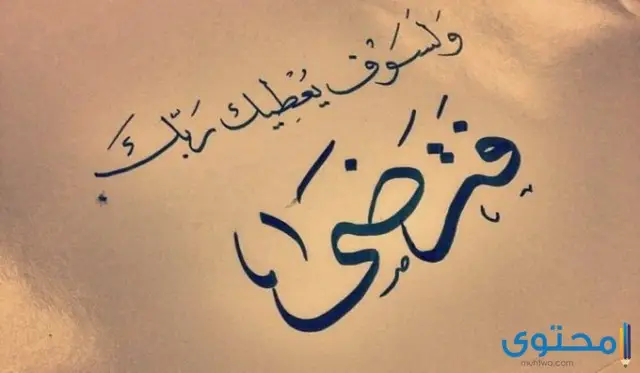 وَلَسَوْفَ يُعْطِيكَ رَبُّكَ
فَتَرْضَى
محتوى
muhtwa.com